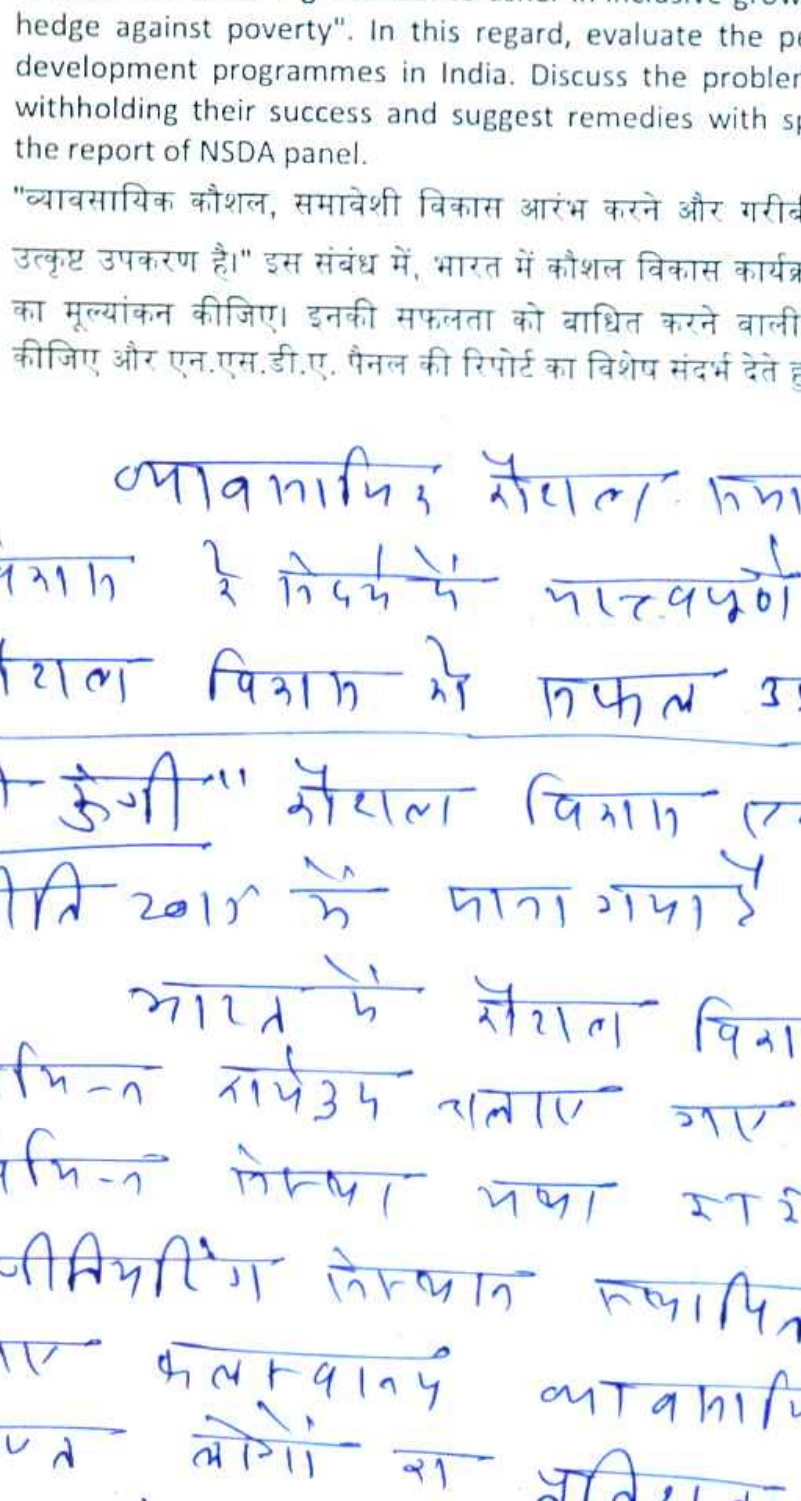 hedge against poverty". In this regard, evaluate the pe
development programmes in India. Discuss the probler
withholding their success and suggest remedies with sp
the report of NSDA panel.
"व्यावसायिक कौशल, समावेशी विकास आरंभ करने और गरीबी
उत्कृष्ट उपकरण है।" इस संबंध में, भारत में कौशल विकास कार्यक्र
का मूल्यांकन कीजिए। इनकी सफलता को बाधित करने वाली
कीजिए और एन.एस.डी.ए. पैनल की रिपोर्ट का विशेष संदर्भ देते हु
व्यावसायिक कौशल समा
के संदर्भ में महत्वपूर्ण
विकास को सफल
कुंजी" कौशल विकास
नीति 2015 में माना गया है
भारत में कौशल विका
कार्यक्रम चलाए गए
संस्था यथा
इंजीनियरिंग संस्थान स्थापित
फलस्वरूप व्यावसायि
लोगों का